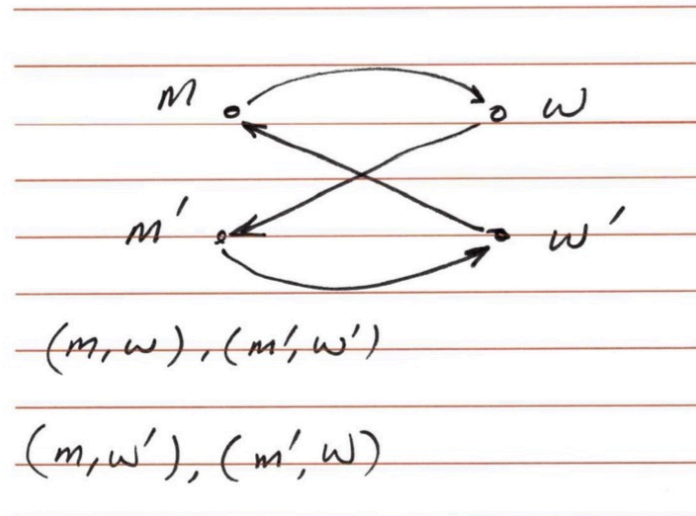 m w
m' w'
(m, w), (m', w')
(m, w'), (m', w)